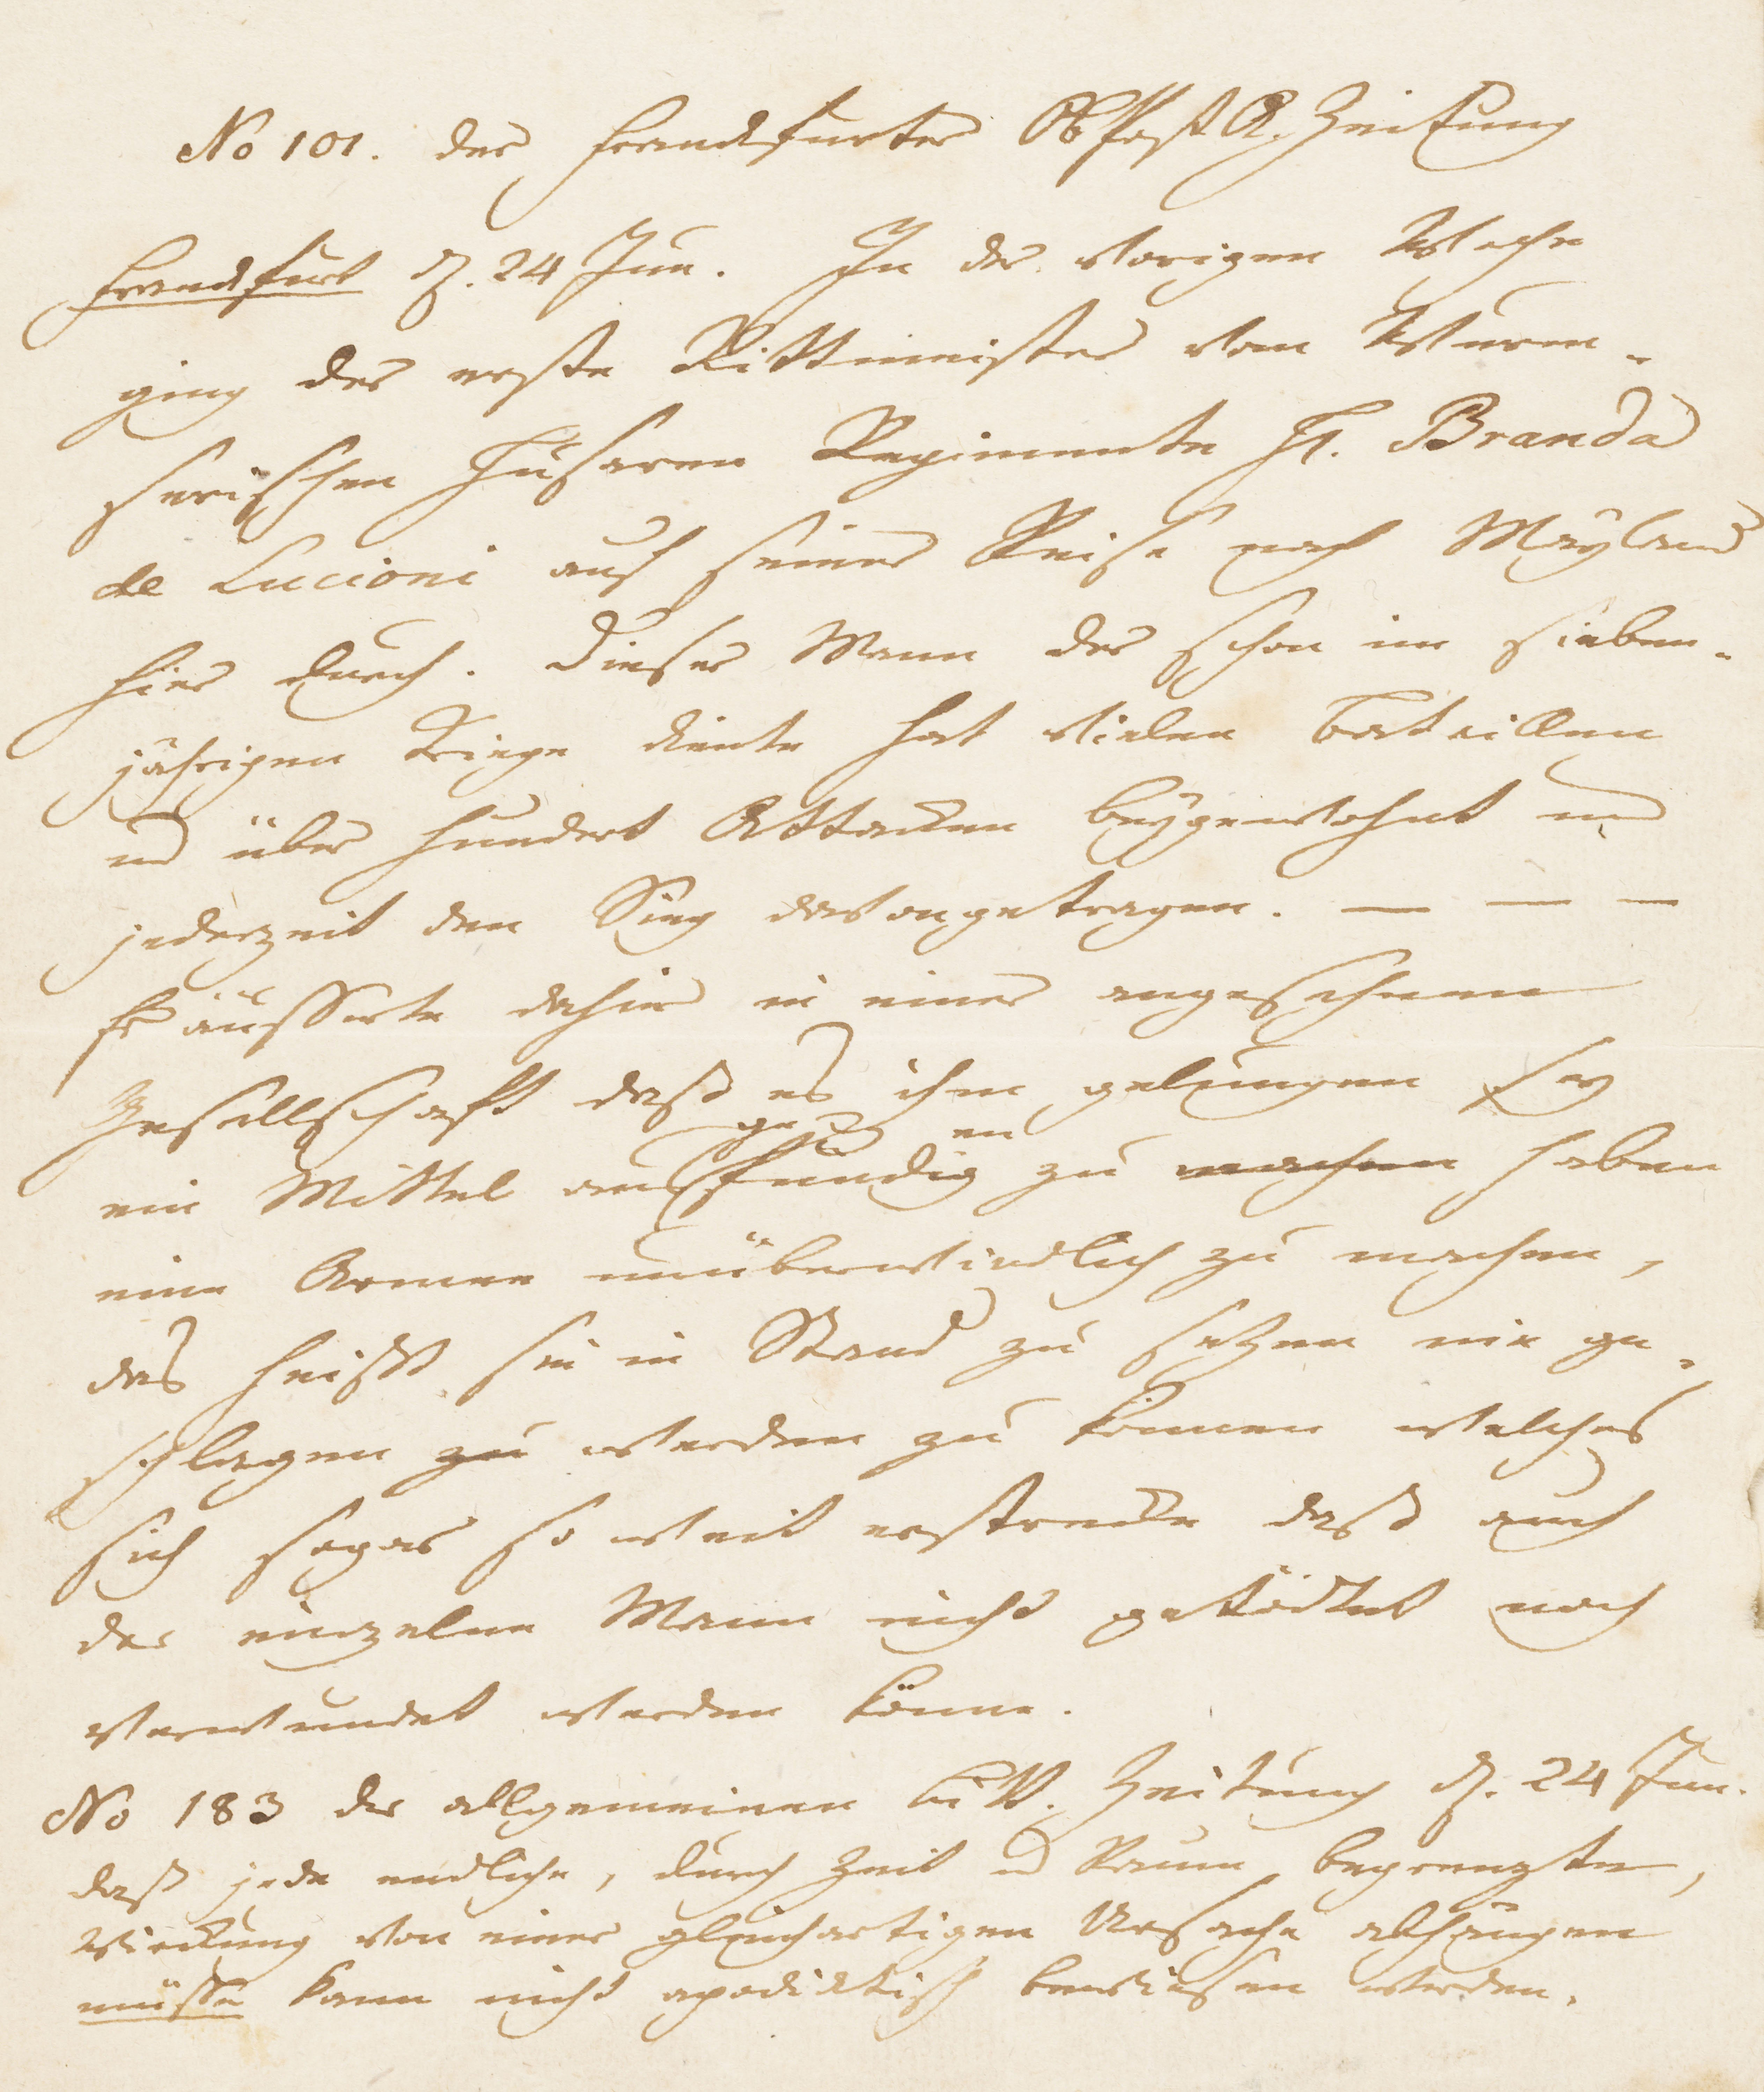 No 101. der Franckfurter Ob Post A. Zeitung
Franckfurt d. 24 Jun. In der vorigen Woche
ging der erste Rittmeister vom Wurm-
serischen Husaren Regimente H. Branda
de Lucioni auf seiner Reise nach Mayland
hier durch. Dieser Mann der schon im sieben-
jährigen Kriege diente hat vielen Bataillen
und über hundert Attacken beygewohnt und
jederzeit den Sieg davongetragen. — — —
Er äusserte dahier in einer angesehenen
Gesellschaft daß es ihm gelungen sey
ein Mittel ausfündig zu machen haben
ge en
eine Armee unüberwindlich zu machen,
das heißt sie in Stand zu setzen nie ge-
schlagen zu werden zu können welches
sich sogar so weit erstrecke daß auch
der einzelne Mann nicht getödtet noch
verwundet werden könne.
No 183 der allgemeinen Litt. Zeitung d. 24 Jun.
daß jede endliche, durch Zeit und Raum begrenzte,
Wirckung von einer gleichartigen Ursache abhängen
müsse kann nicht apodiktisch bewiesen werden.